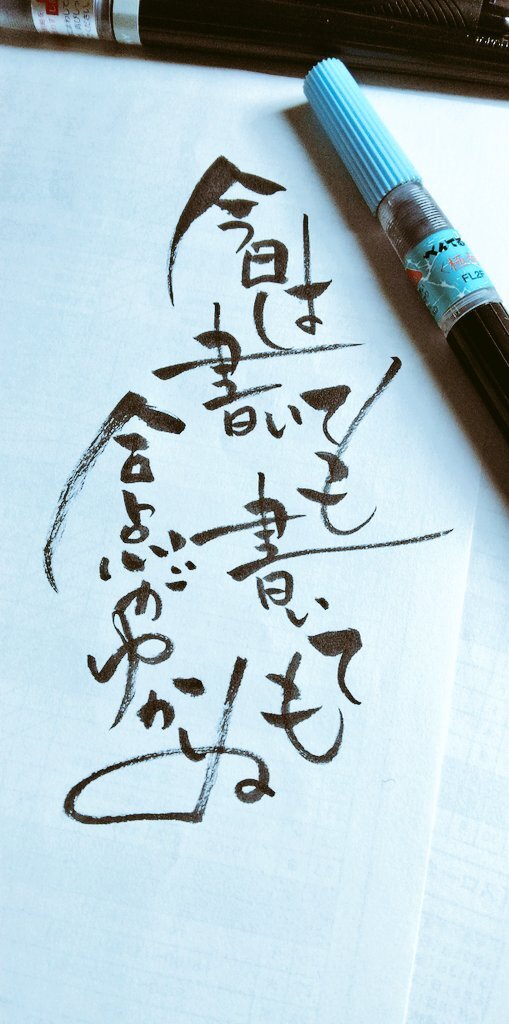 今日は
書いても
書いても
合点がゆかぬ
ぺんてる